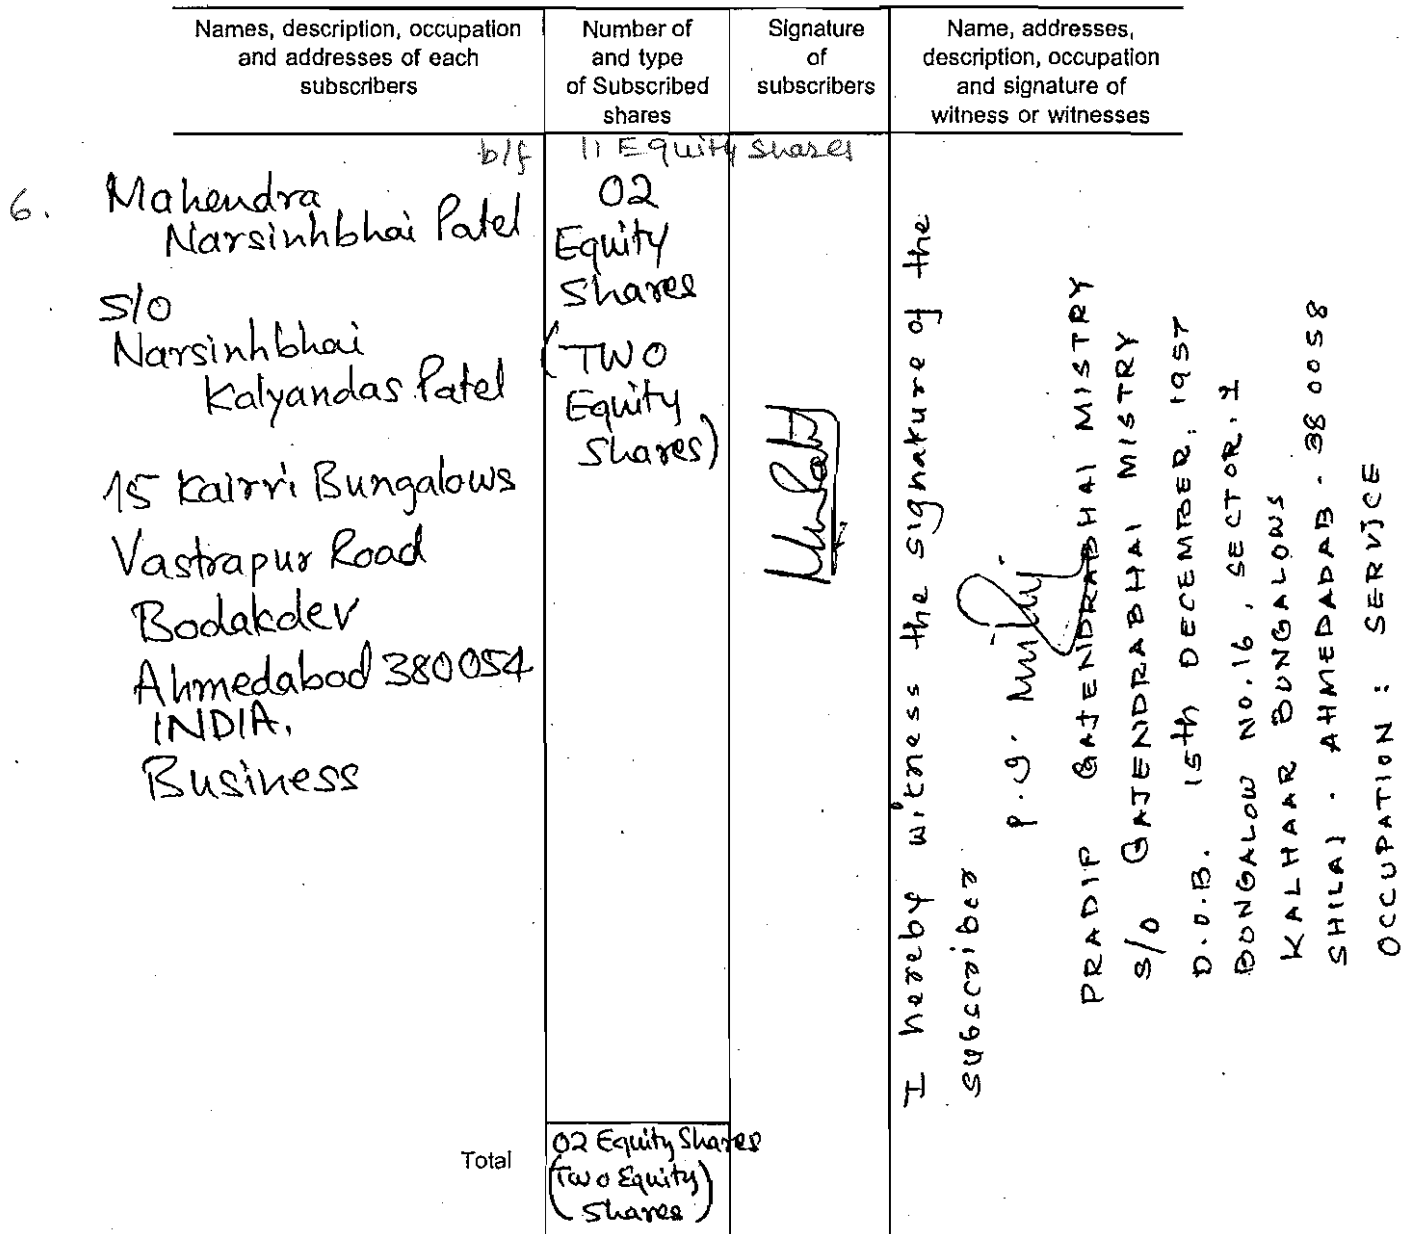 Names, description, occupation
and addresses of each
subscribers
Number of
and type
of Subscribed
shares
Signature
of
subscribers
Name, addresses,
description, occupation
and signature of
witness or witnesses
b/f 11 Equity shares
6. Mahendra
Narsinhbhai Patel
S/O
Narsinhbhai
Kalyandas Patel
15 Kairvi Bungalows
Vastrapur Road
Bodakdev
Ahmedabad 380054
INDIA.
Business
02
Equity
Shares
(TWO
Equity
Shares)
I hereby witness the signature of the
subscriber
P.G. Mistry
PRADIP GAJENDRABHAI MISTRY
S/O GAJENDRABHAI MISTRY
D.O.B. 15th DECEMBER, 1957
BUNGALOW NO.16, SECTOR.I
KALHAAR BUNGALOWS
SHILAJ . AHMEDADAB - 380058
OCCUPATION : SERVICE
Total
02 Equity Shares
(Two Equity
Shares)